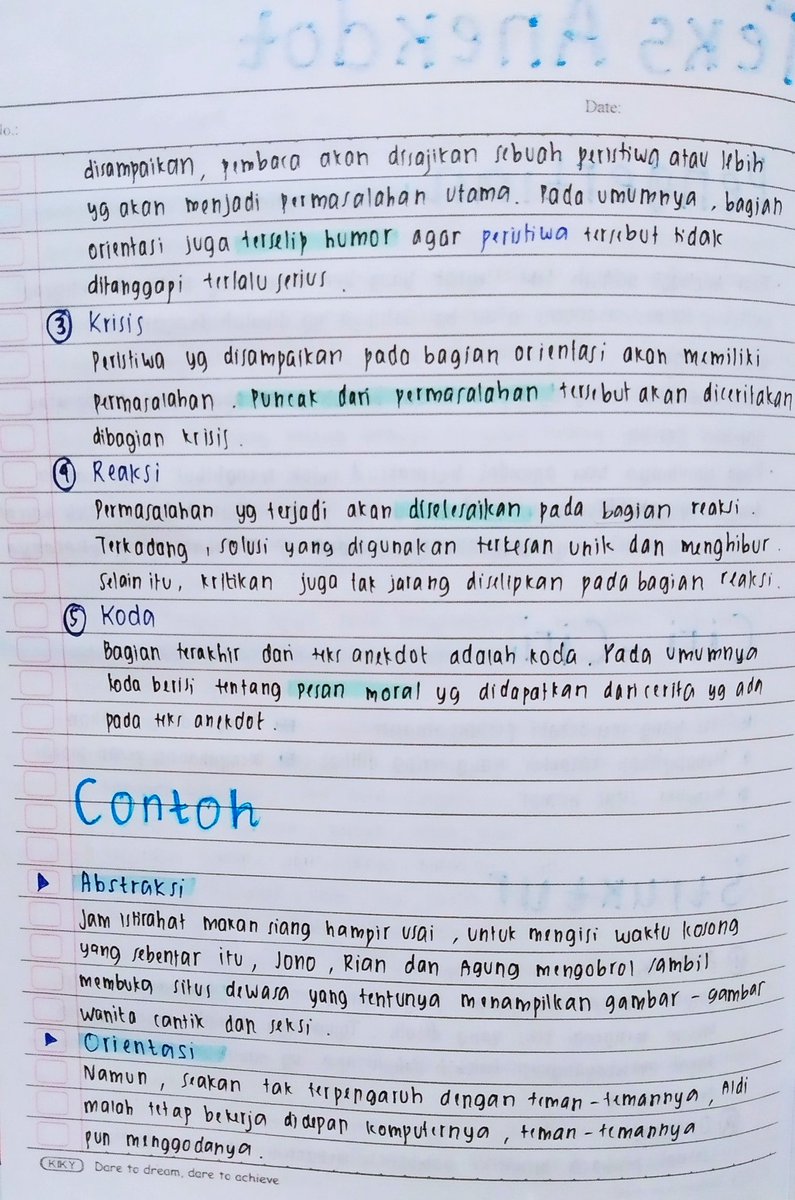 Teks Anekdot
No.:
Date:
disampaikan, pembaca akan disajikan sebuah peristiwa atau lebih
yg akan menjadi permasalahan utama. Pada umumnya, bagian
orientasi juga terselip humor agar peristiwa tersebut tidak
ditanggapi terlalu serius.
③ Krisis
Peristiwa yg disampaikan pada bagian orientasi akan memiliki
permasalahan. Puncak dari permasalahan tersebut akan diceritakan
dibagian krisis.
④ Reaksi
Permasalahan yg terjadi akan diselesaikan pada bagian reaksi.
Terkadang, solusi yang digunakan terkesan unik dan menghibur.
Selain itu, kritikan juga tak jarang diselipkan pada bagian reaksi.
⑤ Koda
Bagian terakhir dari teks anekdot adalah koda. Pada umumnya
koda berisi tentang pesan moral yg didapatkan dari cerita yg ada
pada teks anekdot.
Contoh
Abstraksi
Jam istirahat makan siang hampir usai, untuk mengisi waktu kosong
yang sebentar itu, Jono, Rian dan Agung mengobrol sambil
membuka situs dewasa yang tentunya menampilkan gambar-gambar
wanita cantik dan seksi.
Orientasi
Namun, seakan tak terpengaruh dengan teman-temannya, Aldi
malah tetap bekerja didepan komputernya, teman-temannya
pun menggodanya.
KIKY Dare to dream, dare to achieve